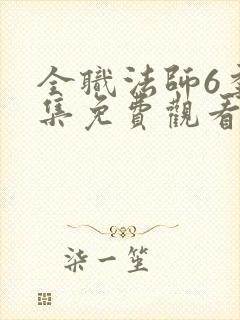 全職法師6季
集免費觀看
柒一笙